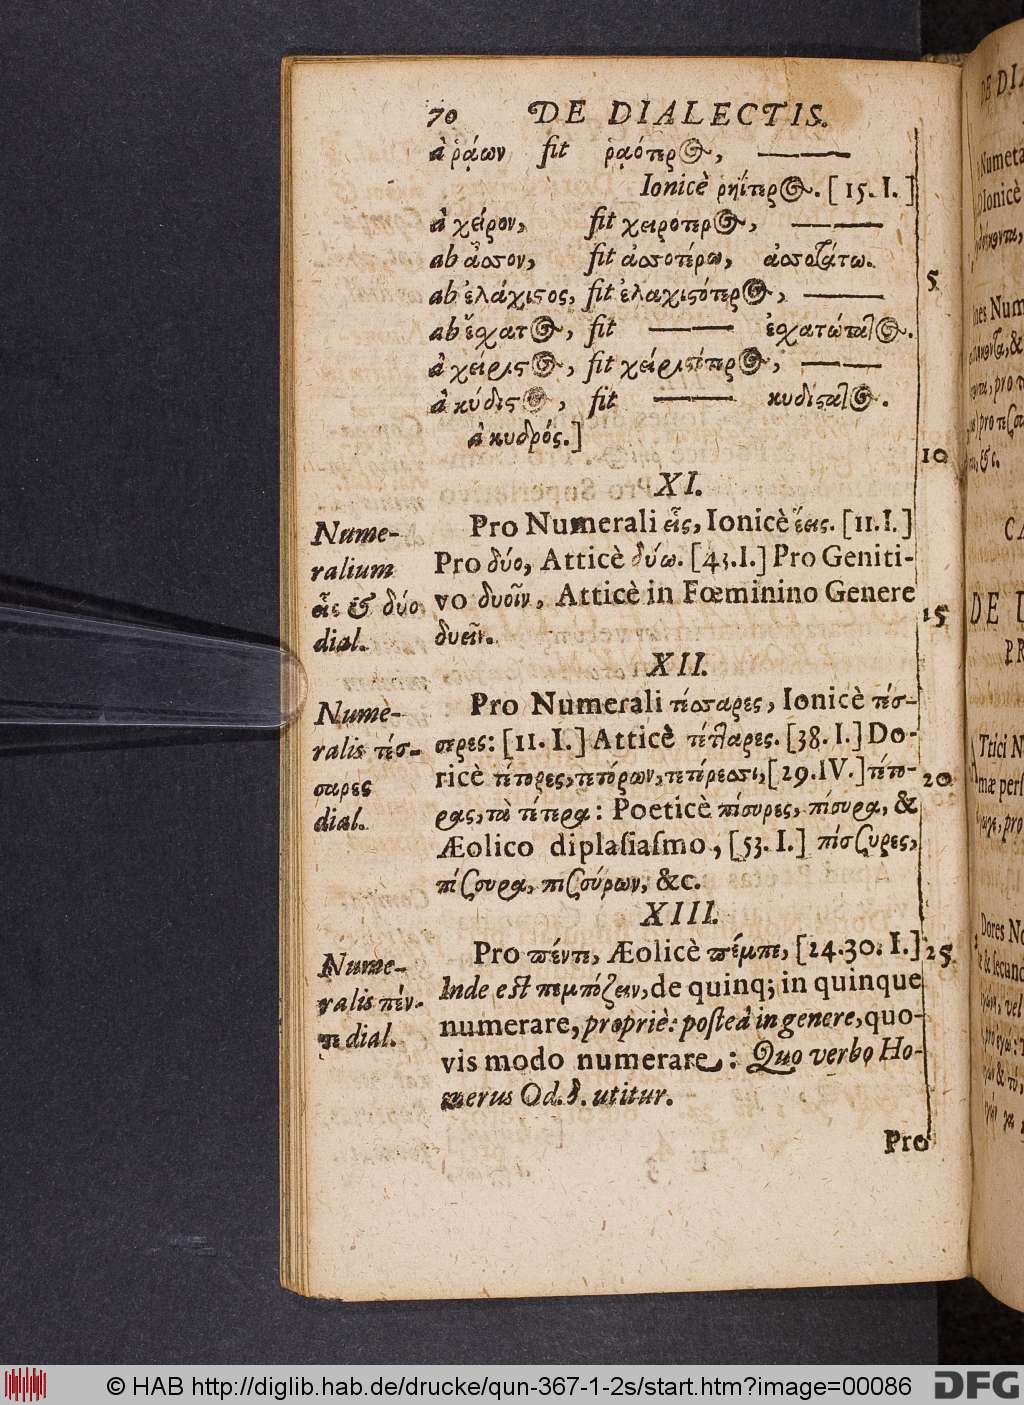 70 DE DIALECTIS.
à ῥᾴων fit ῥᾳότερος, ———
Ionicè ρηΐτερος. [15. I.]
à χείρον, fit χειροτερος, ———
ab ἆσσον, fit ἀσσοτέρω, ἀσσοτάτω.
5
ab ἐλάχιστος, fit ἐλαχιστότερος, ———
ab ἔσχατος, fit ——— ἐσχατώτατος.
à χείριστος, fit χείριστότερος, ———
à κύδιστος, fit ——— κυδίστατος.
à κυδρός.]
10
XI.
Nume-
ralium
εἷς & δύο
dial.
Pro Numerali εἷς, Ionicè ἕεις. [11. I.]
Pro δύο, Atticè δύω. [43. I.] Pro Geniti-
vo δυοῖν, Atticè in Fœminino Genere
15
δυεῖν.
XII.
Nume-
ralis τέσ-
σαρες
dial.
Pro Numerali τέσσαρες, Ionicè τέσ-
σερες: [11. I.] Atticè τέτταρες. [38. I.] Do-
ricè τέτορες, τετόρων, τετέρεσσι, [29. IV.] τέτο-
20
ρας, τὰ τέτερα: Poeticè πίσυρες, πίσυρα, &
Æolico diplasiasmo, [53. I.] πίσζυρες,
πίζουρα, πιζούρων, &c.
XIII.
Nume-
ralis πέν-
τε dial.
Pro πέντε, Æolicè πέμπε, [24. 30. I.]
25
Inde est πεμπάζειν, de quinq; in quinque
numerare, propriè: posteà in genere, quo-
vis modo numerare: Quo verbo Ho-
merus Od. δ. utitur.
Pro
© HAB http://diglib.hab.de/drucke/qun-367-1-2s/start.htm?image=00086
DFG